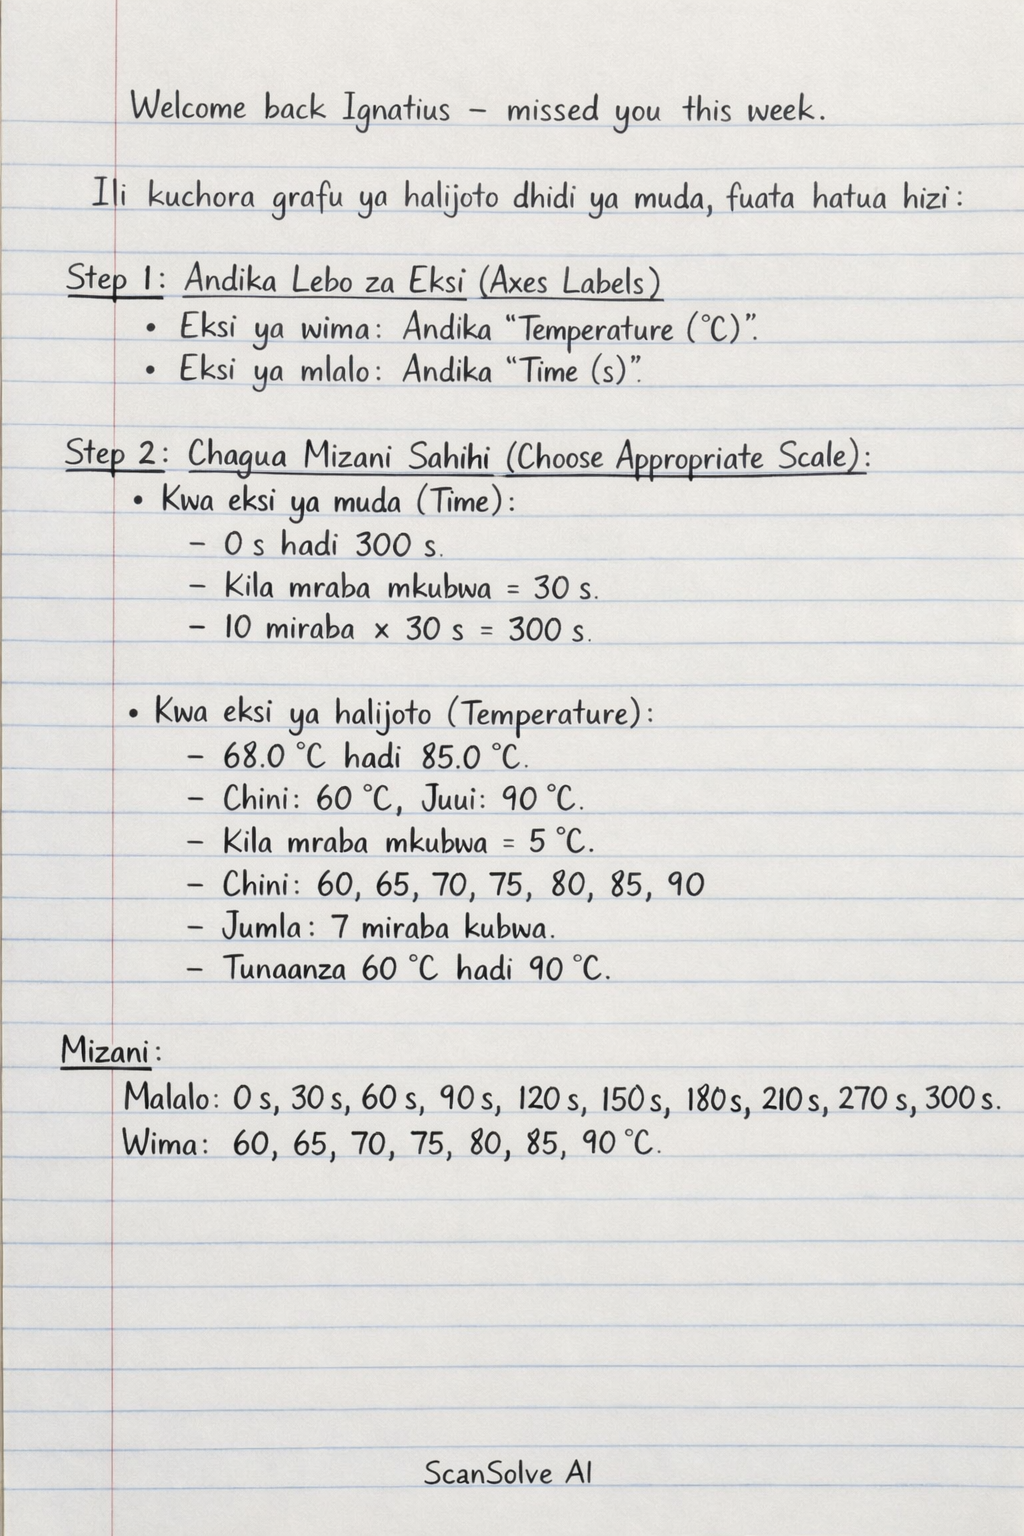 Welcome back Ignatius – missed you this week.
Ili kuchora grafu ya halijoto dhidi ya muda, fuata hatua hizi:
Step 1: Andika Lebo za Eksi (Axes Labels)
• Eksi ya wima: Andika “Temperature (°C)”.
• Eksi ya mlalo: Andika “Time (s)”.
Step 2: Chagua Mizani Sahihi (Choose Appropriate Scale):
• Kwa eksi ya muda (Time):
– 0 s hadi 300 s.
– Kila mraba mkubwa = 30 s.
– 10 miraba x 30 s = 300 s.
• Kwa eksi ya halijoto (Temperature):
– 68.0 °C hadi 85.0 °C.
– Chini: 60 °C, Juui: 90 °C.
– Kila mraba mkubwa = 5 °C.
– Chini: 60, 65, 70, 75, 80, 85, 90
– Jumla: 7 miraba kubwa.
– Tunaanza 60 °C hadi 90 °C.
Mizani:
Malalo: 0 s, 30 s, 60 s, 90 s, 120 s, 150 s, 180 s, 210 s, 270 s, 300 s.
Wima: 60, 65, 70, 75, 80, 85, 90 °C.
ScanSolve AI